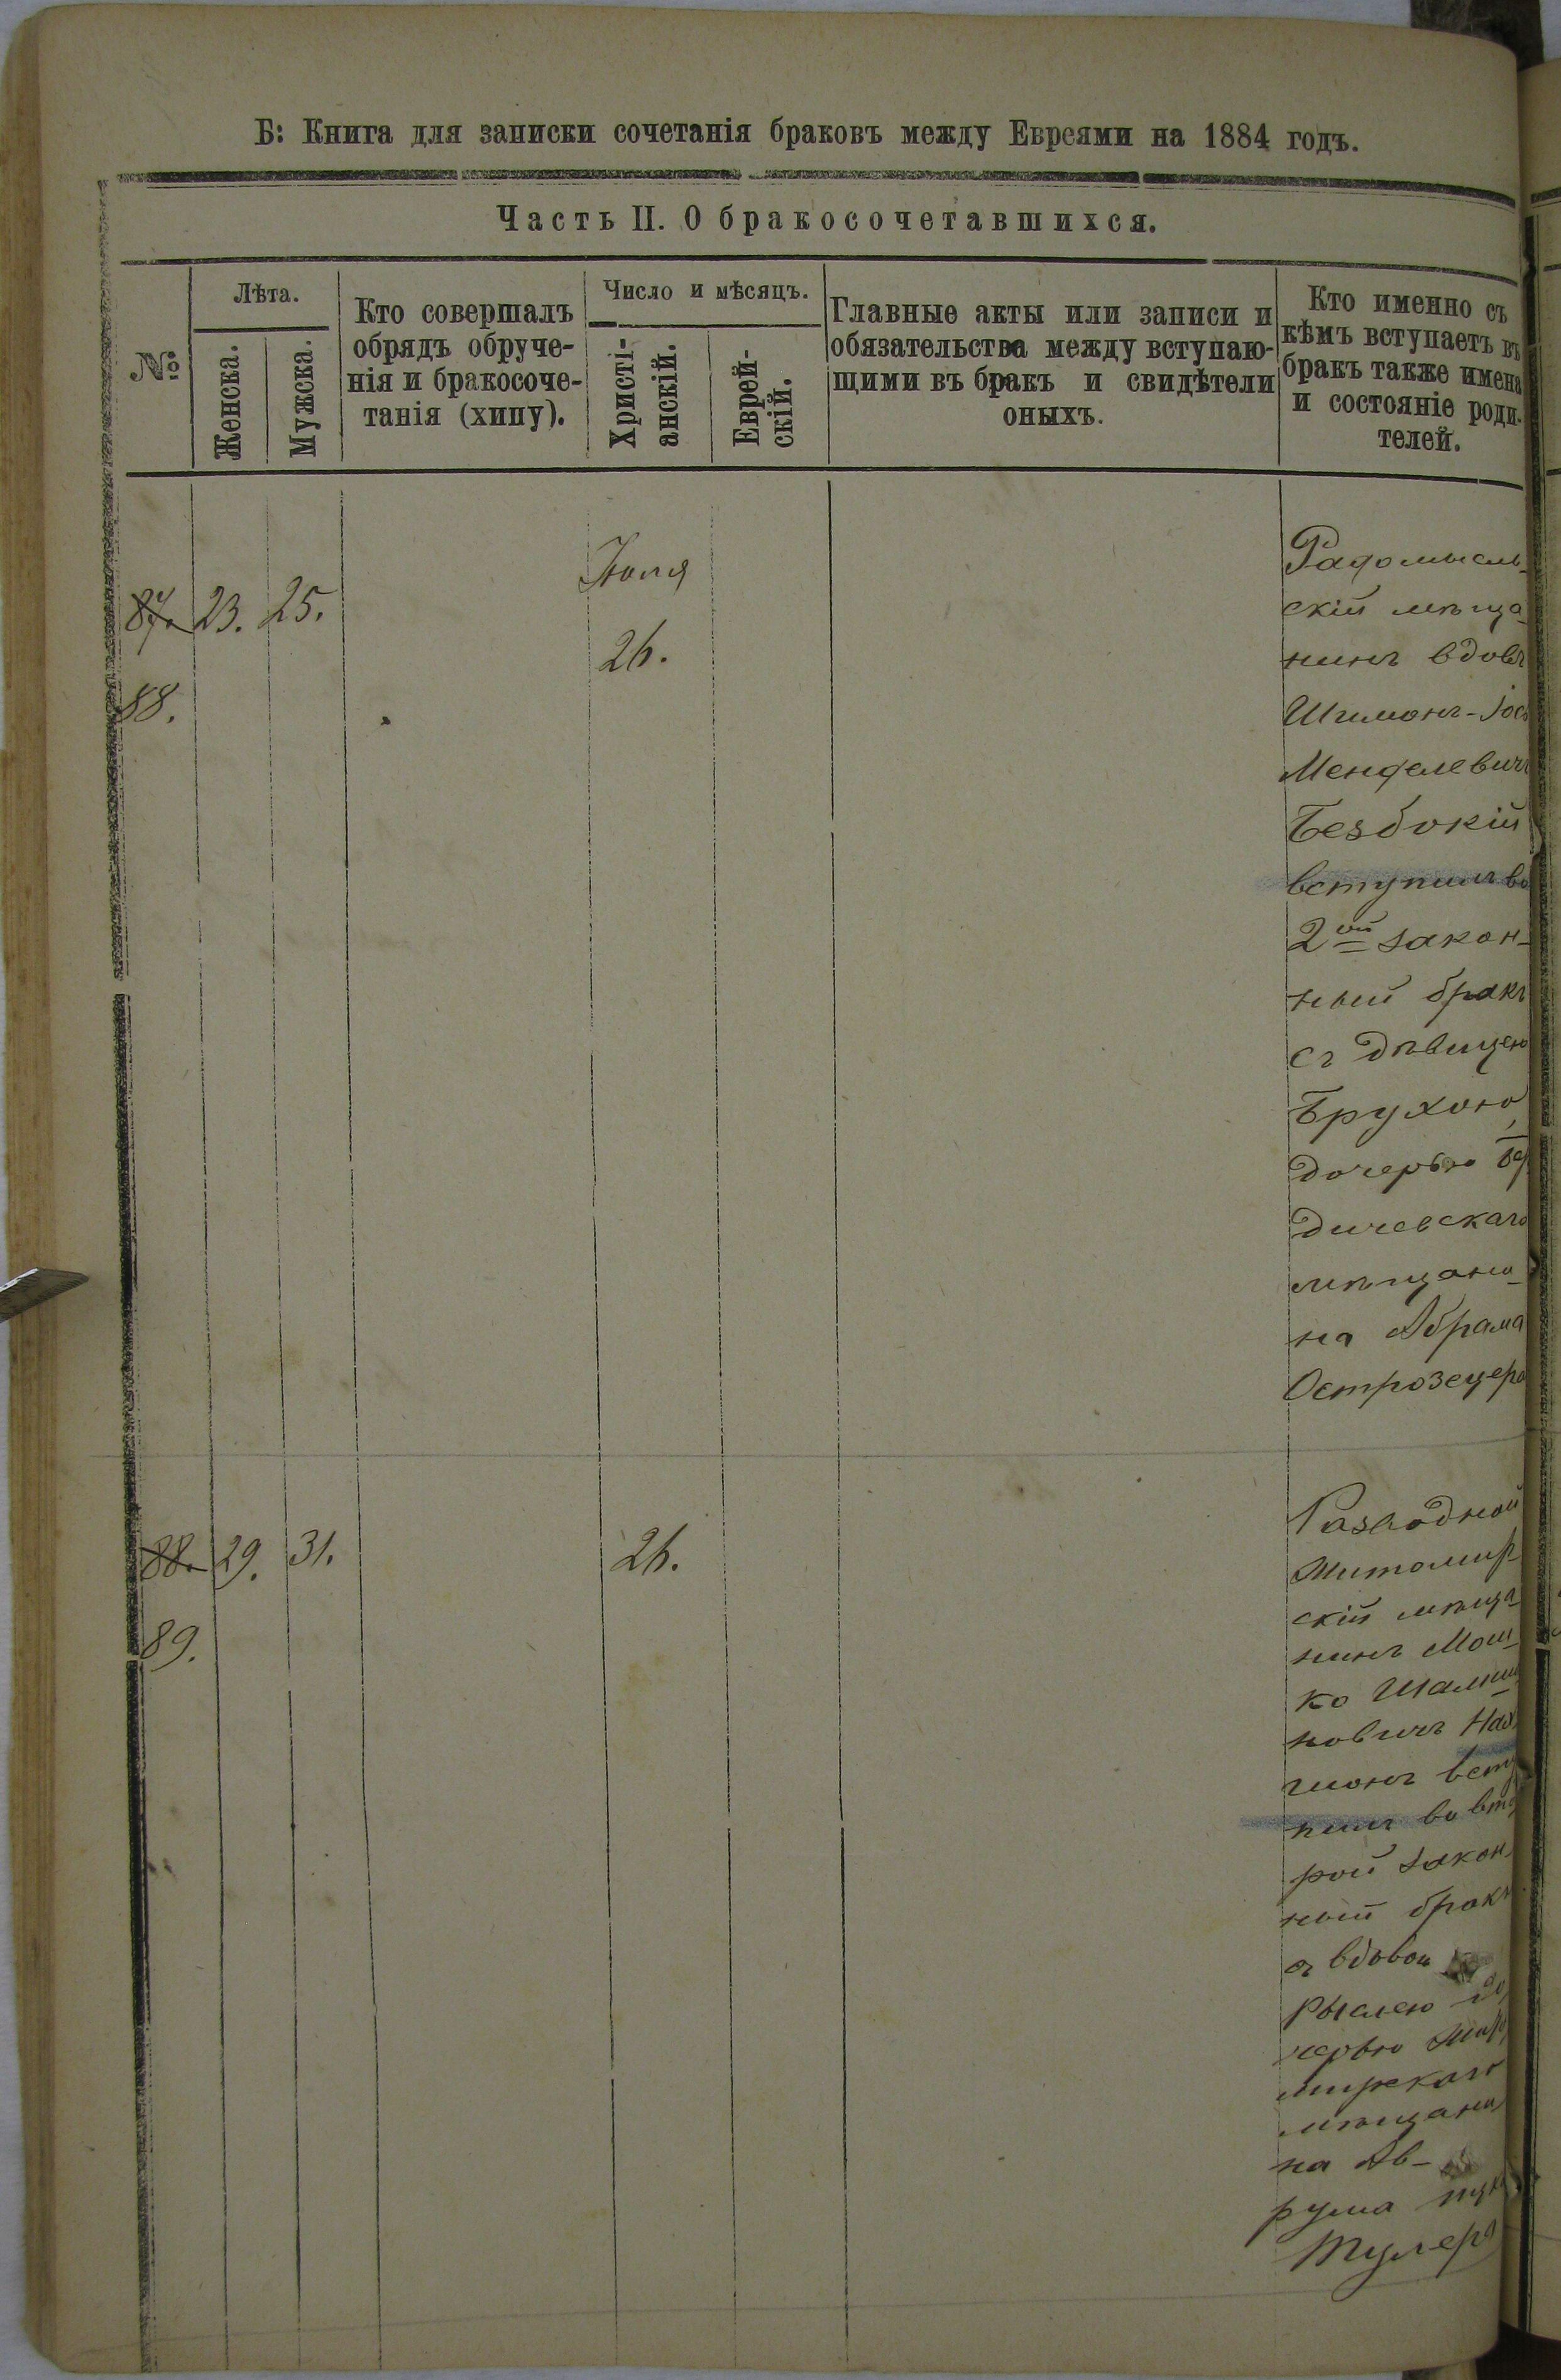 Б: Книга для записки сочетанія браковъ между Евреями на 1884 годъ.
Часть II. О бракосочетавшихся.
№
Лѣта.
Женска.
Мужска.
Кто совершалъ
обрядъ обруче-
нія и бракосоче-
танія (хипу).
Число и мѣсяцъ.
Христі-
анскій.
Еврей-
скій.
Главные акты или записи и
обязательства между вступаю-
щими въ бракъ и свидѣтели
оныхъ.
Кто именно съ
кѣмъ вступаетъ въ
бракъ также имена
и состояніе роди-
телей.
87. 23. 25.
88.
Іюля
26.
Радомысль-
скій мѣща-
нинъ вдовъ
Шимонъ-Іось
Менделевичъ
Безбокій
вступилъ во
2ой закон-
ный бракъ
съ дѣвицею
Брухою,
дочерью Бер
дичевскаго
мѣщани-
на Абрама
Острозецера
88. 29. 31.
89.
26.
Разводной
Житомир
скій мѣща-
нинъ Мош-
ко
новичъ
всту
пилъ во вто
рой закон
ный бракъ
съ вдовою
до
черью
мирскаго
мѣщани
на Ав-
рума